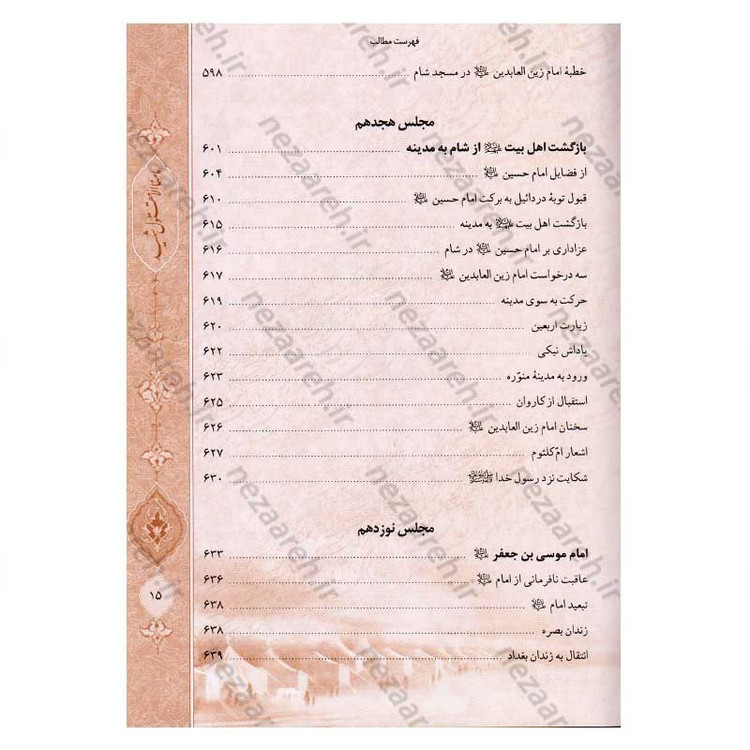 فهرست مطالب
خطبهٔ امام زین العابدین علیه‌السلام در مسجد شام ۵۹۸
مجلس هجدهم
بازگشت اهل بیت علیهم‌السلام از شام به مدینه ۶۰۱
از فضایل امام حسین علیه‌السلام ۶۰۴
قبول توبهٔ دردائیل به برکت امام حسین علیه‌السلام ۶۱۰
بازگشت اهل بیت علیهم‌السلام به مدینه ۶۱۵
عزاداری بر امام حسین علیه‌السلام در شام ۶۱۶
سه درخواست امام زین العابدین علیه‌السلام ۶۱۷
حرکت به سوی مدینه ۶۱۹
زیارت اربعین ۶۲۰
پاداش نیکی ۶۲۲
ورود به مدینهٔ منوّره ۶۲۳
استقبال از کاروان ۶۲۵
سخنان امام زین العابدین علیه‌السلام ۶۲۶
اشعار امّ‌کلثوم ۶۲۷
شکایت نزد رسول خدا ﷺ ۶۳۰
مجلس نوزدهم
امام موسی بن جعفر علیه‌السلام ۶۳۳
عاقبت نافرمانی از امام علیه‌السلام ۶۳۶
تبعید امام علیه‌السلام ۶۳۸
زندان بصره ۶۳۸
انتقال به زندان بغداد ۶۳۹
۱۵
nezaareh.ir